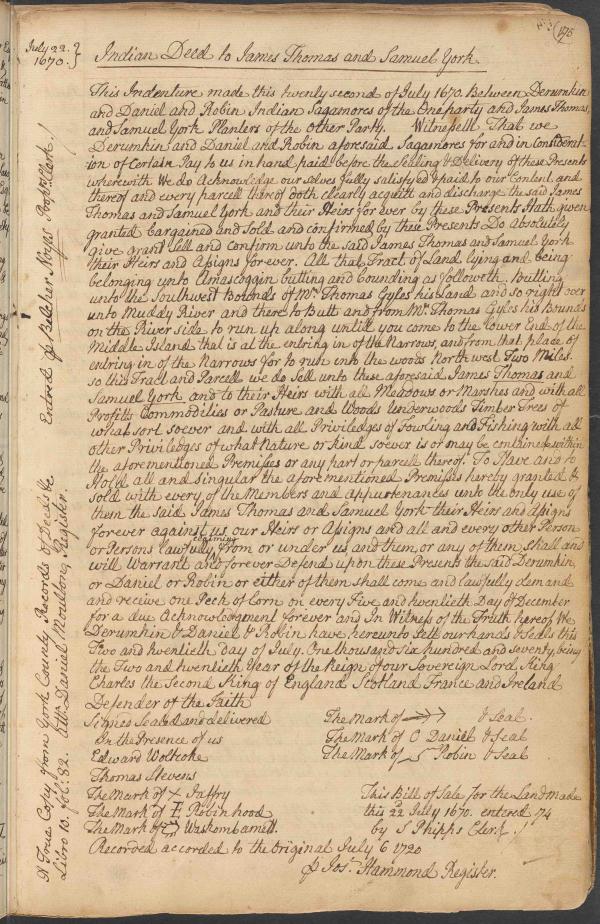 175
July 22.
1670.
Indian Deed to James Thomas and Samuel York.
This Indenture made this twenty second of July 1670. Between Derumkin
and Daniel and Robin Indian Sagamores of the One party and James Thomas,
and Samuel York Planters of the Other Party. Witnesseth That we
Derumkin and Daniel and Robin aforesaid Sagamores for and in Considerat-
ion of Certain Pay to us in hand paid before the Sealing & Delivery of these Presents
wherewith We do Acknowledge our selves fully satisfyed & paid to our Content, and
thereof and every parcell thereof doth clearly acquitt and discharge the said James
Thomas and Samuel York and their Heirs for ever by these Presents Hath given
granted bargained and Sold and confirmed by these Presents Do Absolutely
give grant sell and Confirm unto the said James Thomas and Samuel York
their Heirs and Assigns for ever. All that Tract of Land lying and being
belonging unto Amascoggin butting and bounding as followeth, Butting
unto the Southwest Bounds of Mr. Thomas Gyles his Land and so right over
unto Muddy River and there to Butt and from Mr. Thomas Gyles his Bounds
on the River side to run up along untill you come to the lower End of the
Middle Island that is at the entring in of the Narrows, and from that place of
entring in of the Narrows for to run into the woods North west Two Miles.
so this Tract and Parcell we do Sell unto these aforesaid James Thomas and
Samuel York and to their Heirs with all Meadows or Marshes and with all
Profitts Commodities or Pasture and Woods Underwoods Timber Trees of
what sort soever and with all Priviledges of Fowling and Fishing with all
other Priviledges of what Nature or kind soever is or may be contained within
the aforementioned Premisses or any part or parcell thereof. To Have and to
Hold all and singular the aforementioned Premisses hereby granted &
sold with every of the Members and appurtenances unto the only use of
them the said James Thomas and Samuel York their Heirs and Assigns
forever against us, our Heirs or Assigns and all and every other Person
or Persons lawfully claiming from or under us, and them, or any of them shall and
will Warrant and forever Defend upon these Presents the said Derumkin,
or Daniel or Robin or either of them shall come and lawfully demand
and receive one Peck of Corn on every Five and twentieth Day of December
for a due Acknowledgment forever and In Witness of the Truth hereof We
Derumkin & Daniel & Robin have hereunto Sett our hands & Seals this
Two and twentieth day of July. One thousand six hundred and seventy, being
the Two and twentieth Year of the Reign of our Sovereign Lord King
Charles the Second King of England Scotland France and Ireland
Defender of the Faith
Signed Sealed and delivered
In the Presence of us
Edward Woltcoke
Thomas Stevens
The Mark of Juffry
The Mark of Robin hood
The Mark of Weskombamett.
The Mark of & Seal.
The Mark of Daniel & Seal
The Mark of Robin & Seal
This Bill of Sale for the Land made
this 22 July 1670. entered 74
by S Phipps Clerk
Recorded accorded to the Original July 6 1720
Jos. Hammond Register.
A True Copy from York County Records of Deeds &c
Libro 10. fol: 82. Attr. Daniel Moulton, Register.
Entred p Belcher Noyes Proprs. Clerk